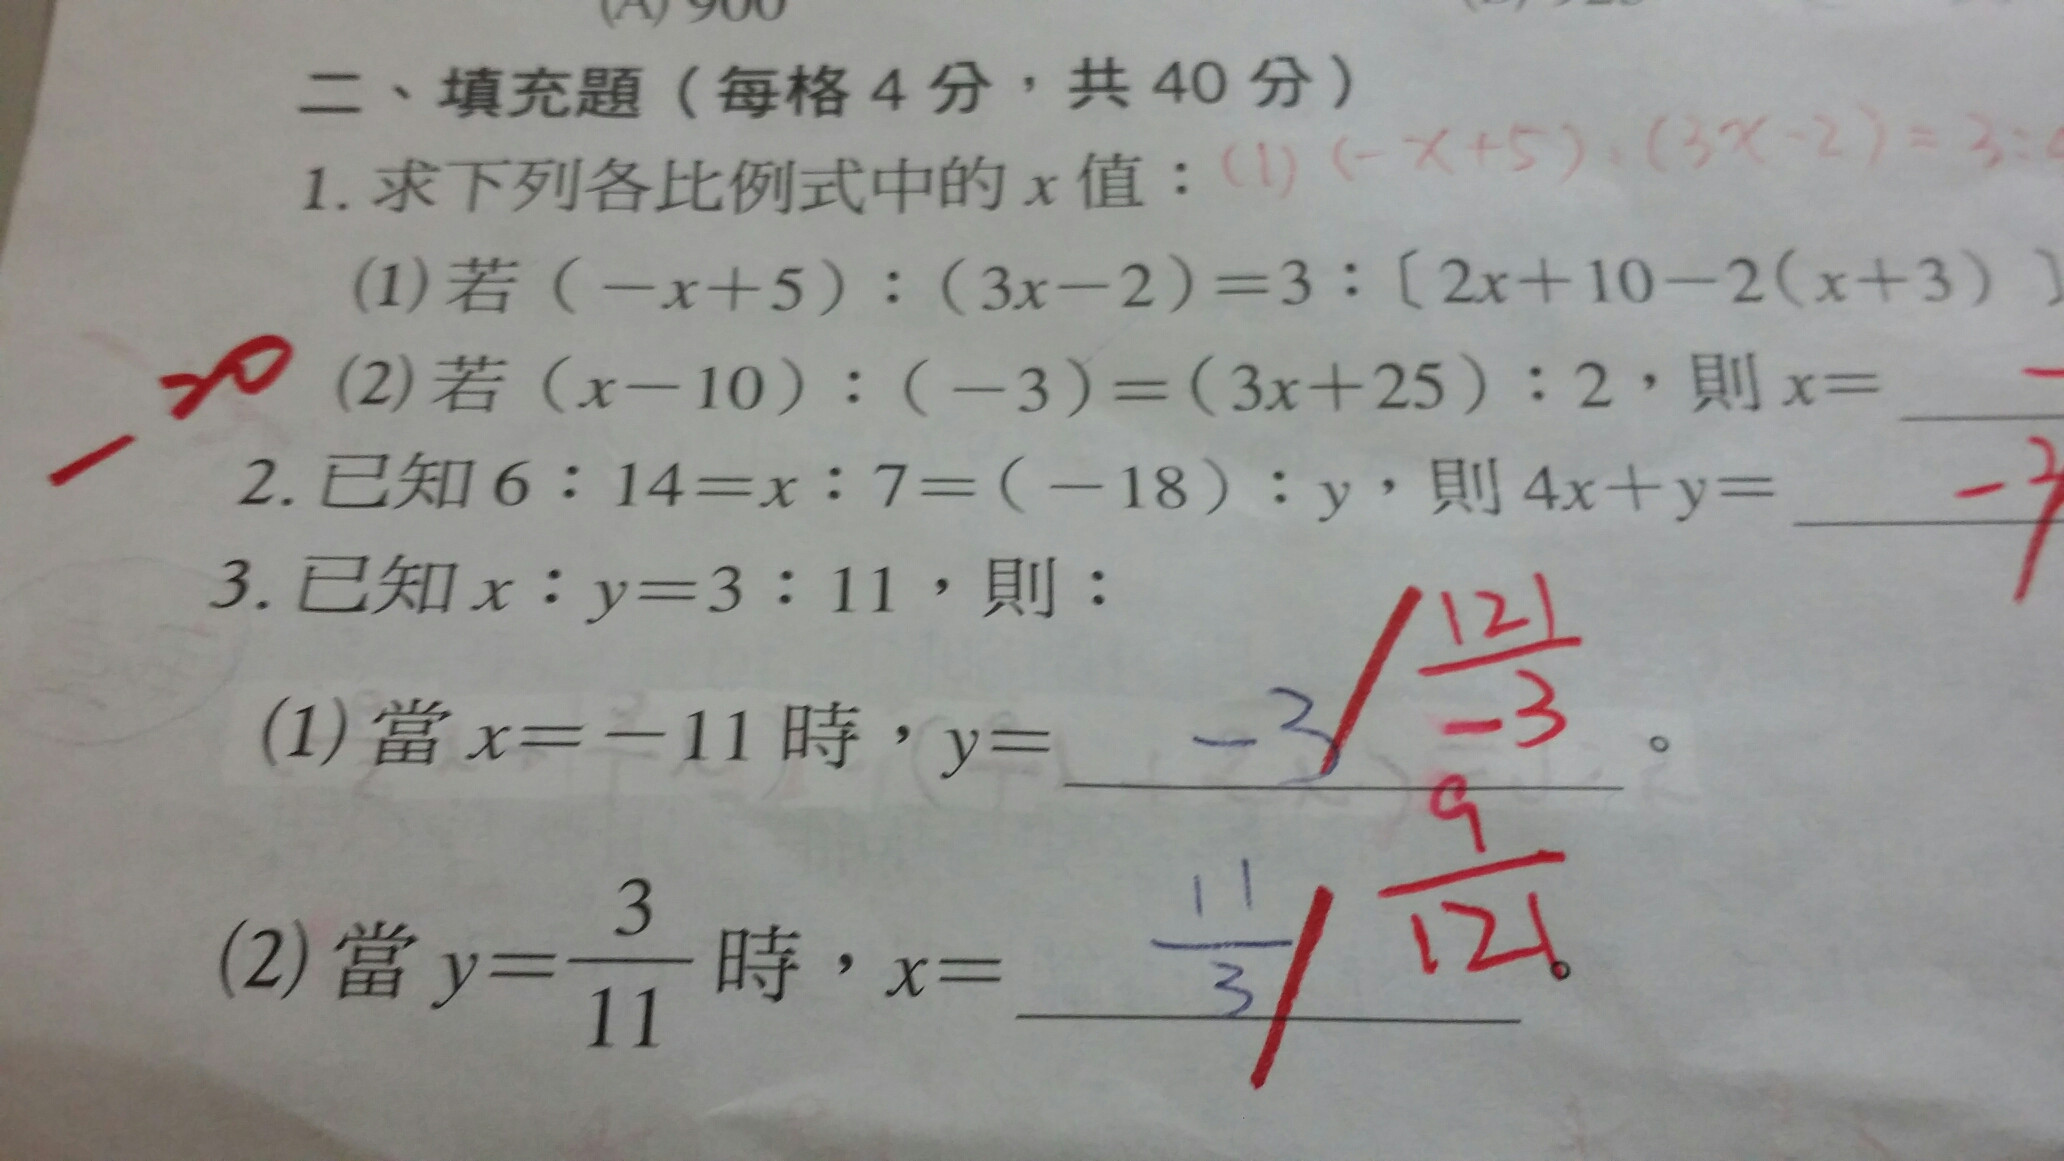 (A) 900
二、填充題（每格 4 分，共 40 分）
1. 求下列各比例式中的 x 值： (1) (-x+5):(3x-2)=3:
(1) 若（－x＋5）：（3x－2）＝3：〔2x＋10－2(x＋3)〕
-20 (2) 若（x－10）：（－3）＝（3x＋25）：2，則 x＝
2. 已知 6：14＝x：7＝（－18）：y，則 4x＋y＝
3. 已知 x：y＝3：11，則：
(1) 當 x＝－11 時，y＝ -3 121/-3 。
(2) 當 y＝3/11 時，x＝ 11/3 9/121 。